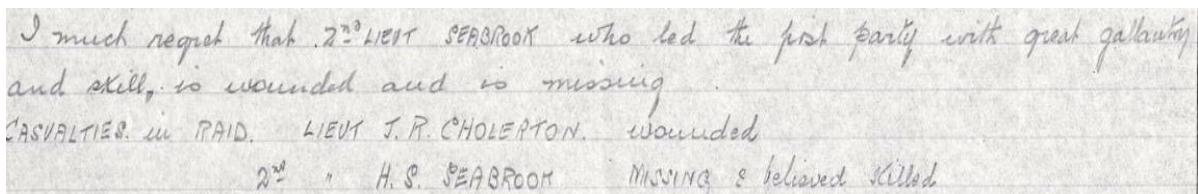 I much regret that 2nd LIEUT SEABROOK who led the first party with great gallantry
and skill, is wounded and is missing.
CASUALTIES. in RAID. LIEUT J. R. CHOLERTON. wounded
2nd " H. S. SEABROOK MISSING & believed killed